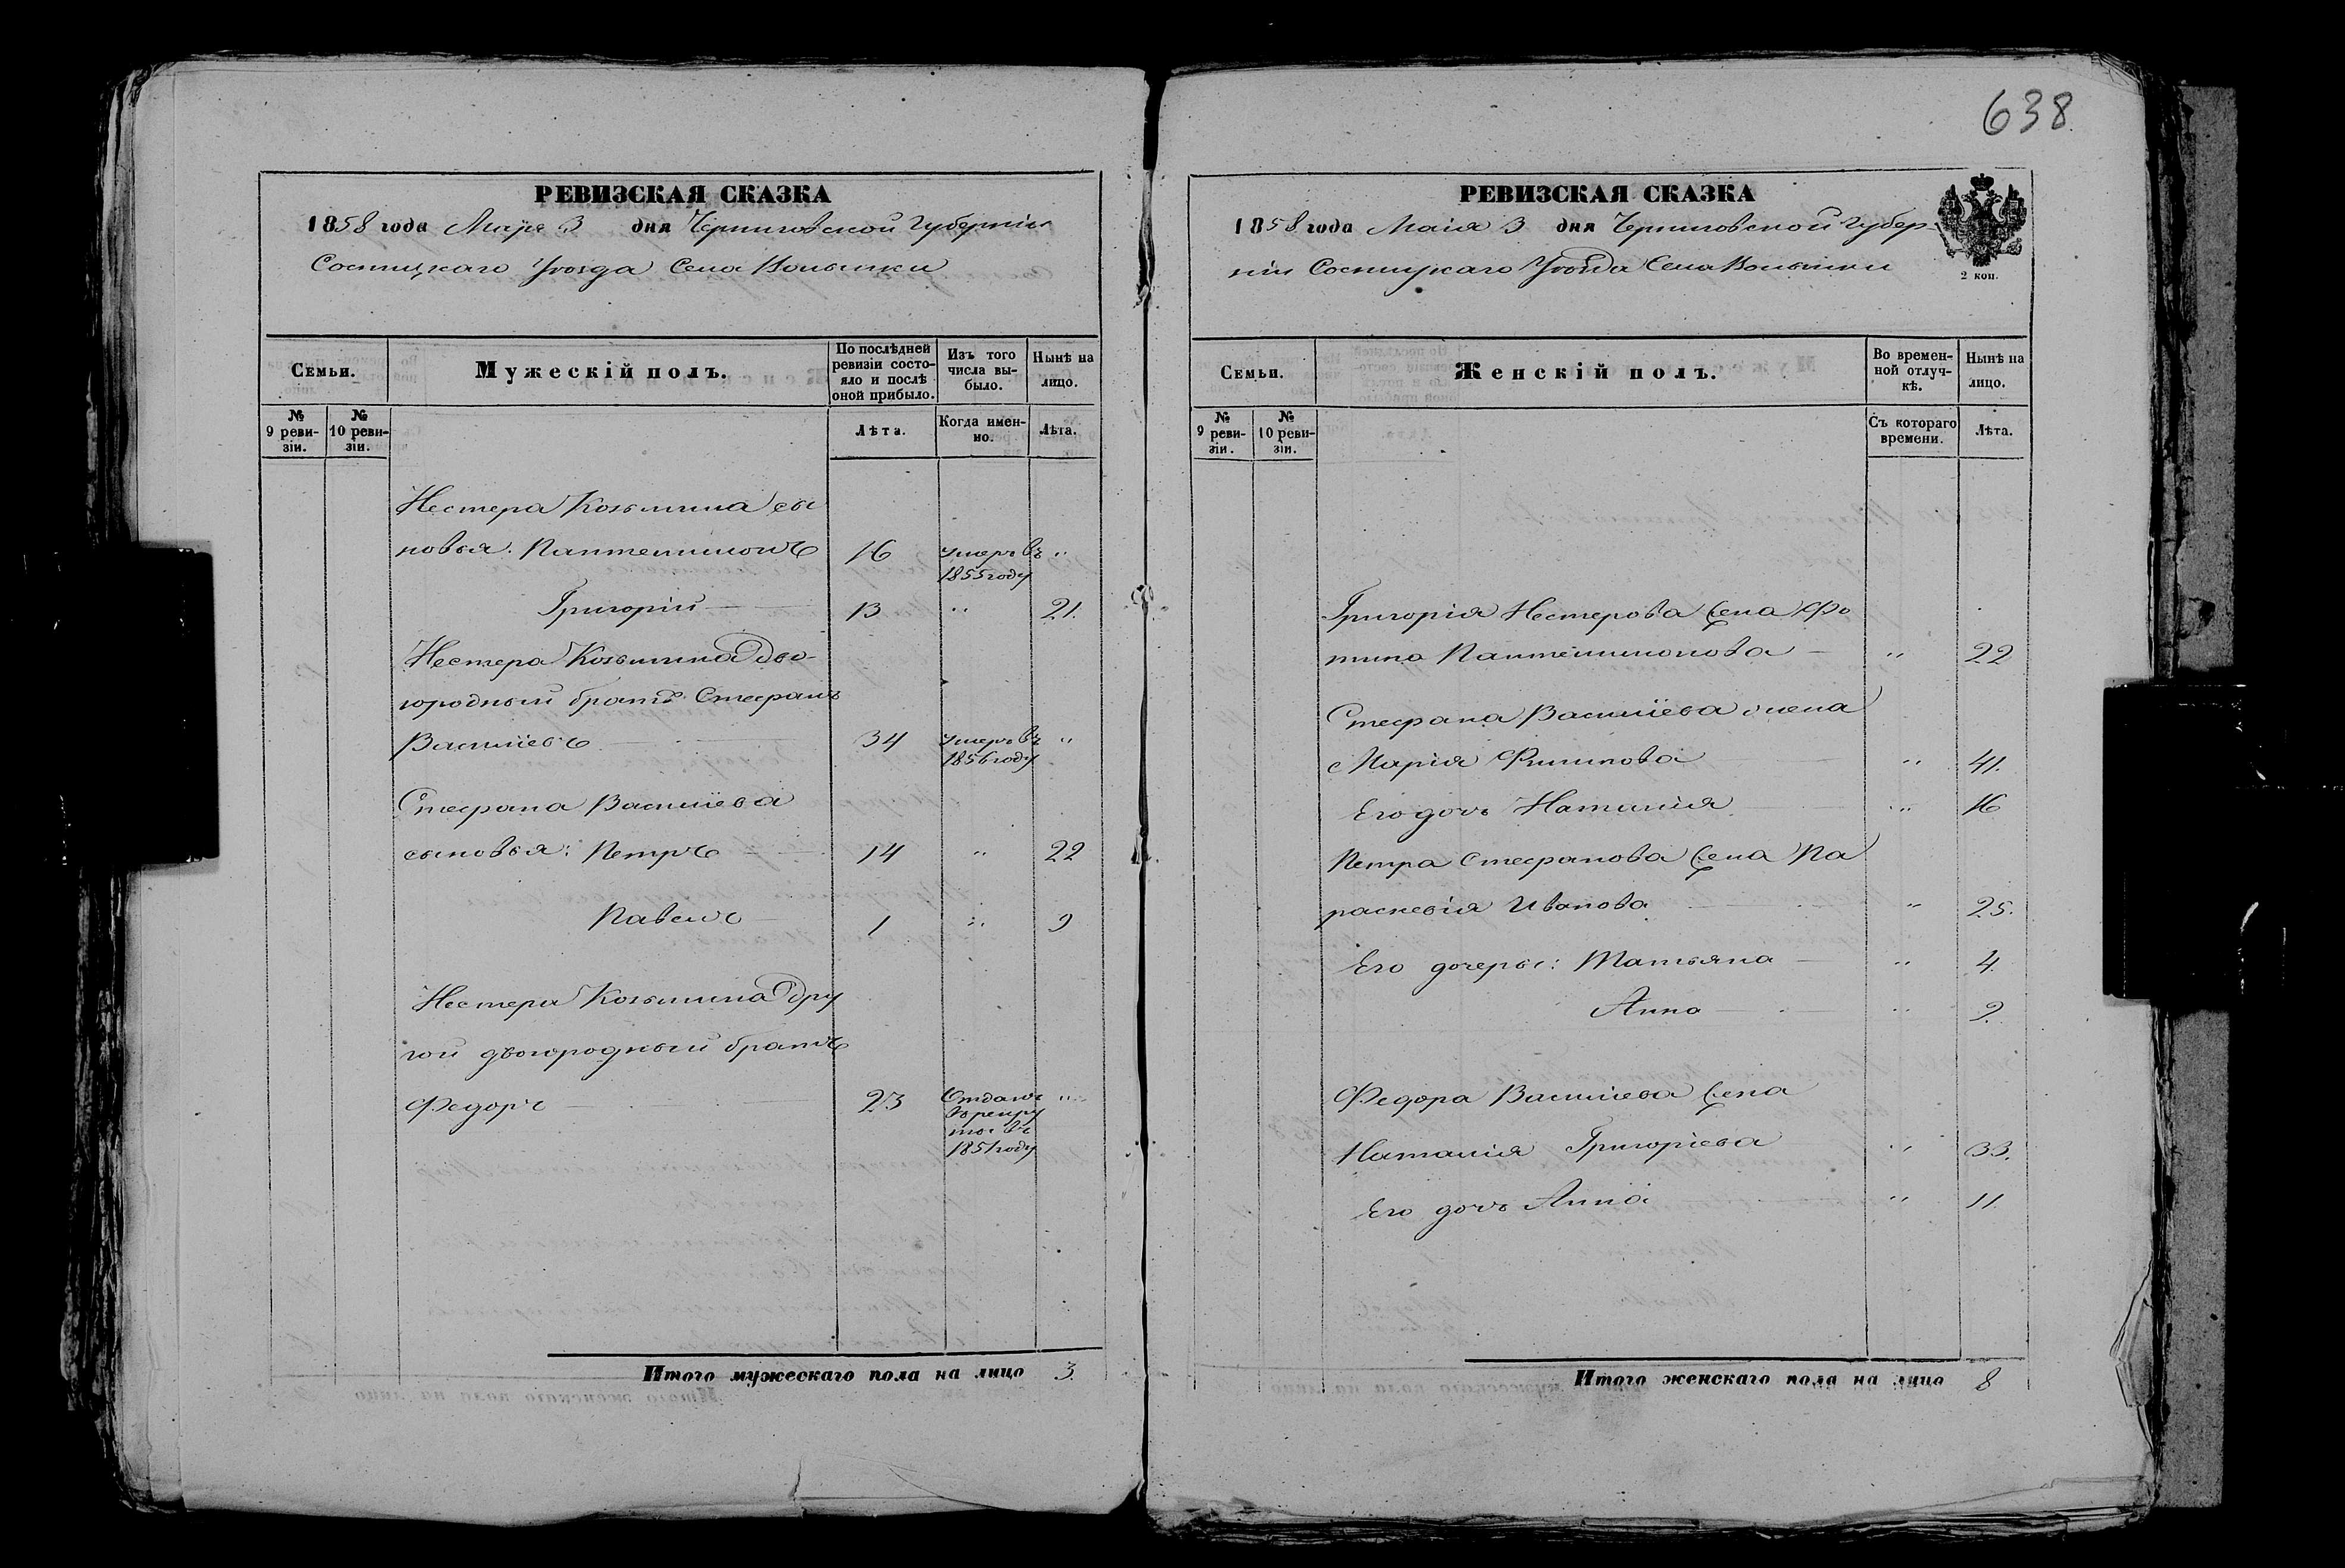 638
РЕВИЗСКАЯ СКАЗКА
1858 года Маія 3 дня Черниговской Губерніи
Сосницкаго Уѣзда Села Волынки
Семьи.
Мужескій полъ.
По послѣдней ревизіи состояло и послѣ оной прибыло.
Изъ того числа выбыло.
Нынѣ на лицо.
№ 9 ревизіи.
№ 10 ревизіи.
Лѣта.
Когда именно.
Лѣта.
Нестера Козьмина сы
новья: Пантелимонъ 16 умеръ въ 1855 году "
Григорій 13 " 21.
Нестера Козьмина дво-
юродный братъ Стефанъ
Василіевъ 34 умеръ въ 1856 году "
Стефана Василіева
сыновья: Петръ 14 " 22
Павелъ 1 " 9
Нестера Козьмина дру
гой двоюродный братъ
Федоръ 23 Отданъ в рекруты въ 1851 году "
Итого мужескаго пола на лицо 3.
РЕВИЗСКАЯ СКАЗКА
1858 года Маія 3 дня Черниговской Губер-
ніи Сосницкаго Уѣзда Села Волынки
2 коп.
Семьи.
Женскій полъ.
Во временной отлучкѣ.
Нынѣ на лицо.
№ 9 ревизіи.
№ 10 ревизіи.
Съ котораго времени.
Лѣта.
Григорія Нестерова жена Фо
тина Пантелимонова " 22
Стефана Василіева жена
Марія Филипова " 41.
Его дочь Наталія " 16
Петра Стефанова жена Па
раскевія Иванова " 25.
Его дочеры: Татьяна " 4.
Анна " 2.
Федора Василіева жена
Наталія Григоріева " 33.
Его дочь Анна " 11.
Итого женскаго пола на лицо 8